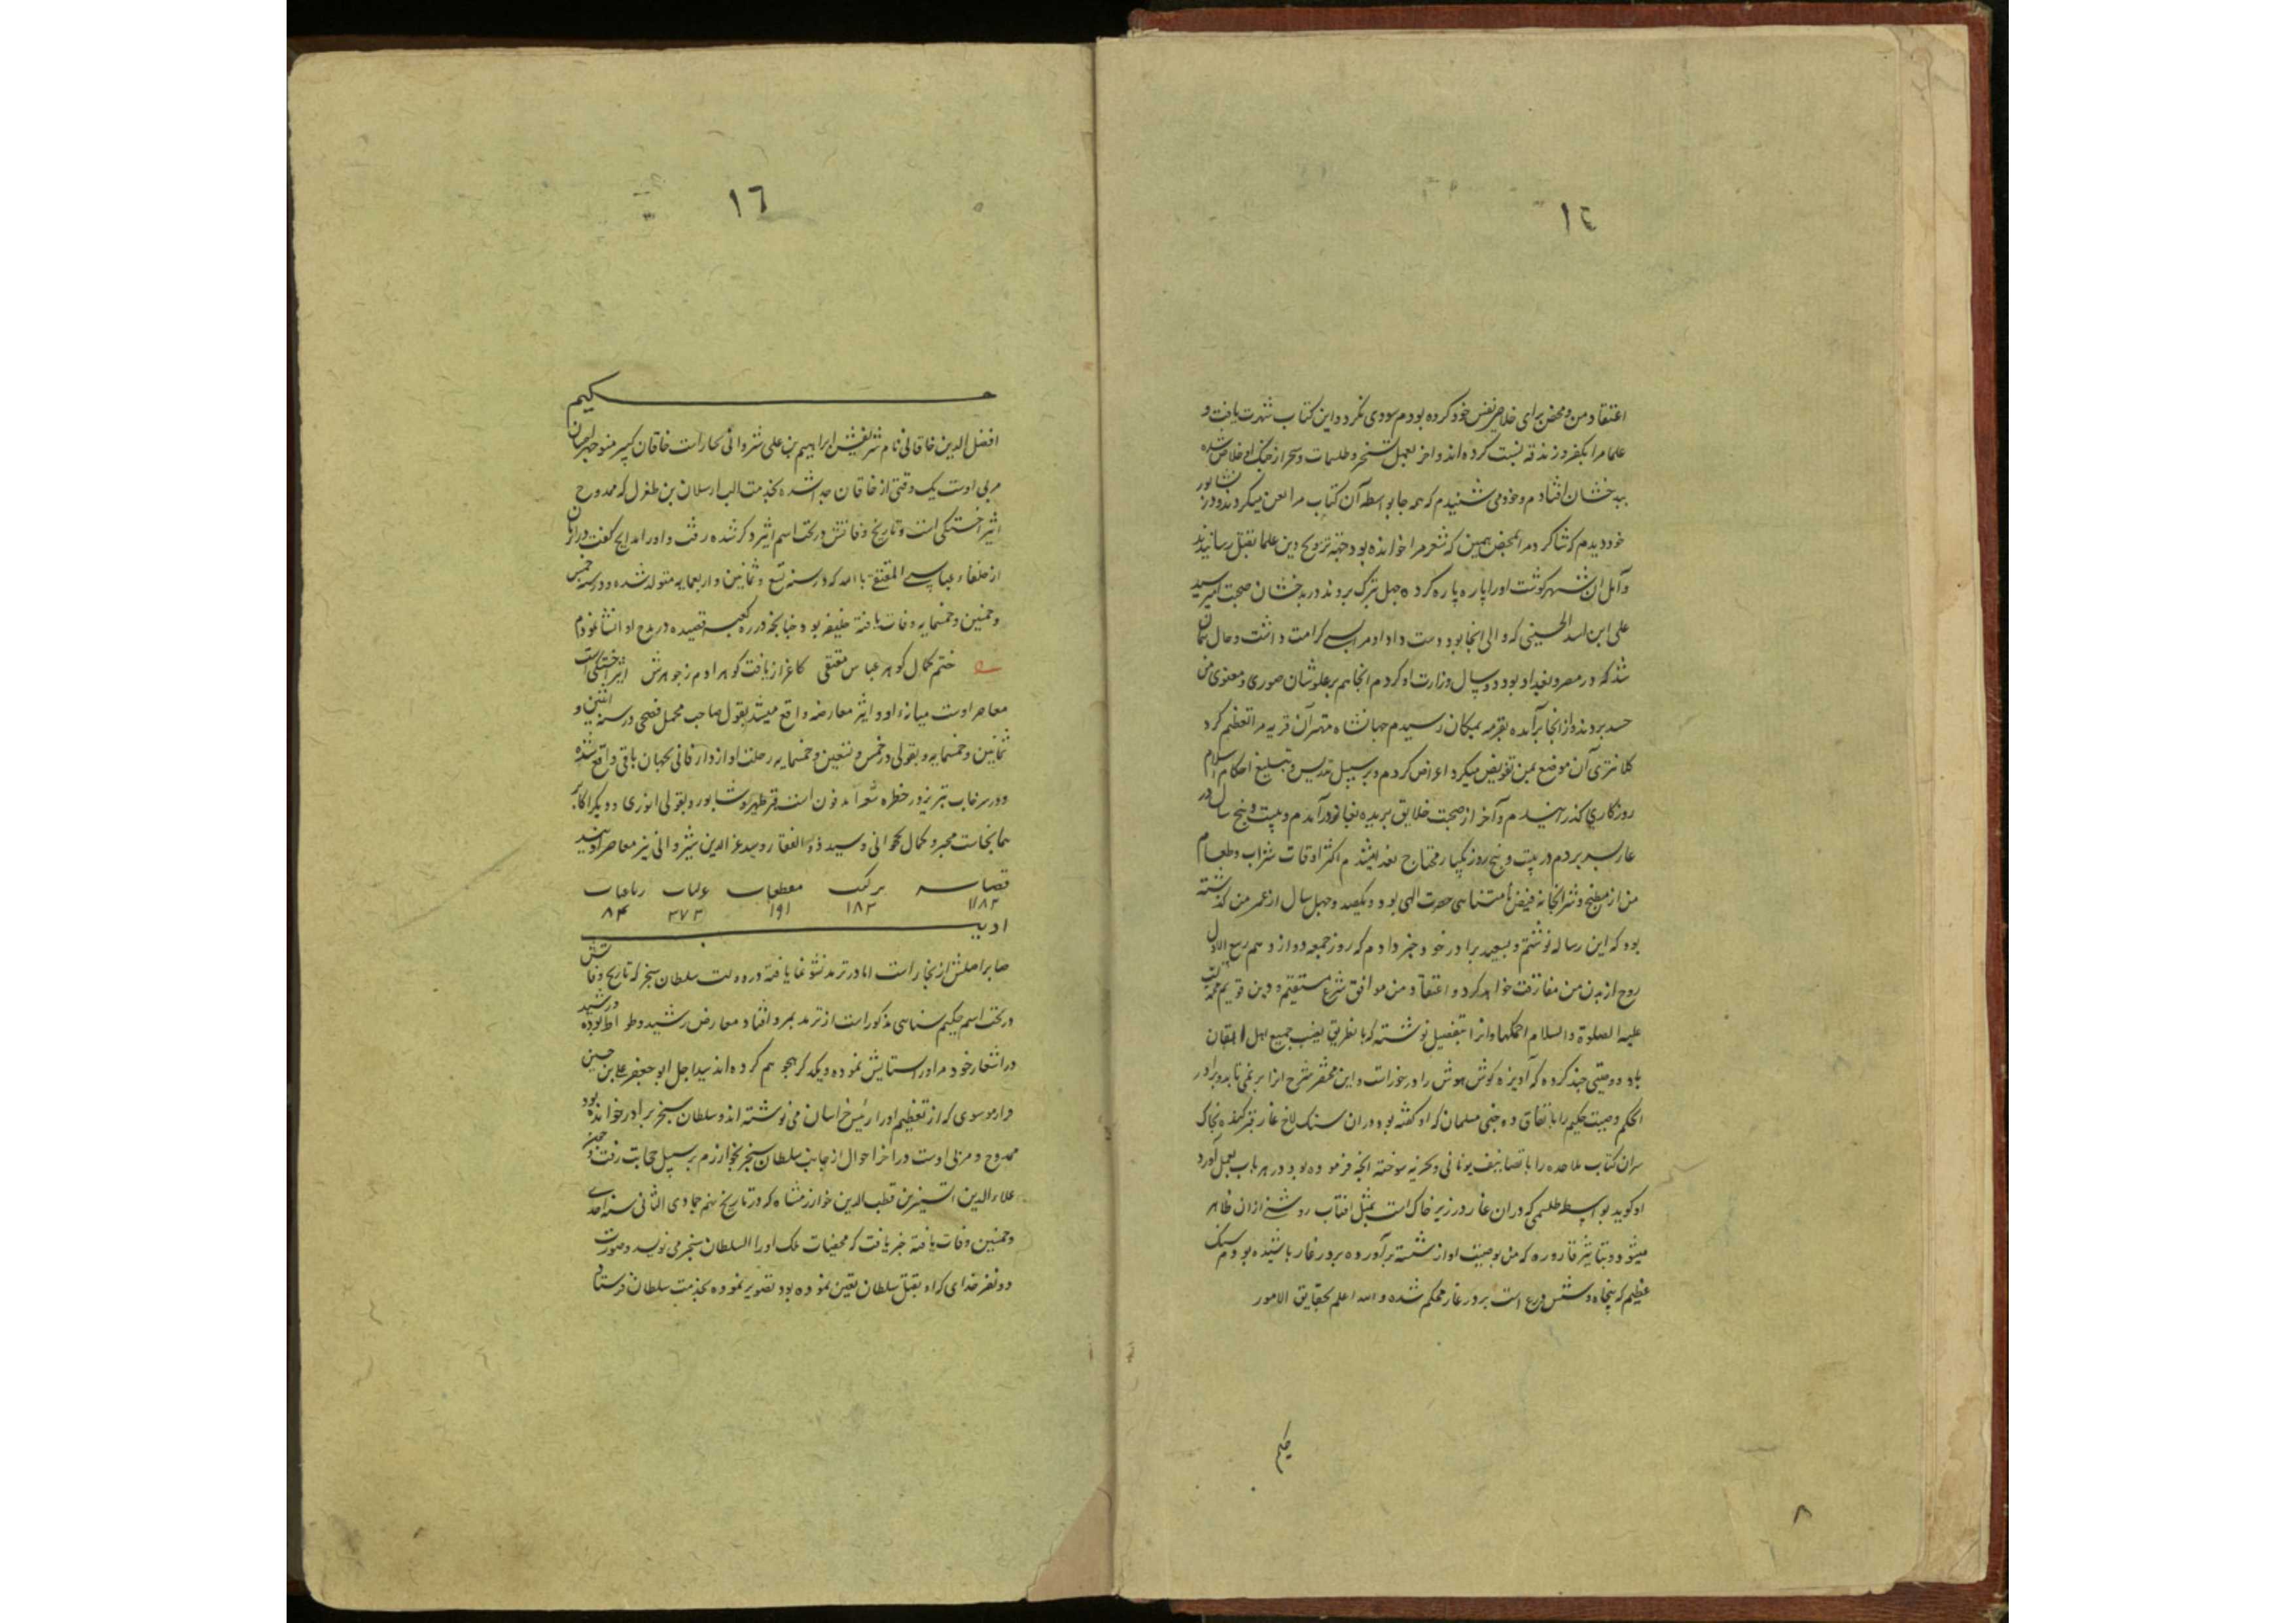 ١٤
اعتقاد من و محض برای خلاص نفس خود کرده بودم سودی نکرد و این کتاب شهرت یافت و
علما مرا بکفر و زندقه نسبت کرده اند و آخر بعمل تسخیر و طلسمات و سحر از چنک خلاص شده
ببدخشان افتادم و خود می شنیدم که همه جا بواسطه آن کتاب مرا لعن میکردند و در نشابور
خود دیدم که شاکرد مرا بمحض همین که شعر مرا خوانده بود جهة ترویج دین علما بقتل رسانیدند
و اهل آن شهر کوشت او را پاره پاره کرده بتبرک بردند در بدخشان صحبت امیر سید
علی ابن اسد الحسینی که والی آنجا بود دست داد او مرا بسی کرامت داشت و حال
شد که در مصر و بغداد بود دو سال وزارت او کردم آنجا هم بر علو شان صوری و معنوی من
حسد بردند و از آنجا برآمده بقریه یمکان رسیدم جهانشاه مهتر آن قریه مرا تعظیم کرد
کلانتری آن موضع بمن تفویض میکرد اعراض کردم و بر سبیل تدریس و تبلیغ احکام اسلام
روزکاری کذرانیدم و آخر از صحبت خلایق بریده بغار در آمدم و بیست و پنج سال در
غار بسر بردم در بیست و پنج روز یکبار محتاج بغذا میشدم اکثر اوقات شراب و طعام
من از مطبخ و شرابخانه فیض نامتناهی حضرت الهی بود و یکصد و چهل سال از عمر من کذشته
بود که این رساله نوشتم و بسعید برادر خود خبر دادم که روز جمعه دوازدهم ربیع الاول
روح از بدن من مفارقت خواهد کرد و اعتقاد من موافق شرع مستقیم و دین قویم محمدیست
علیه الصلوة والسلام احکمها و انرا بتفصیل نوشته که بانطریق نصیب جمیع اهل ایقان
باد و وصیتی چند کرده که آویزه کوش هوش را در خور است و این مختصر شرح انرا بر نمی تابد و برادر
الحکم وصیت حکیم را باتفاق دو جنی مسلمان که او کفته بود در ان سنک لاخ غار قبر کنده بخاک
سران کتاب ملاحده را با تصانیف یونانی و سحریه سوخته انچه فرموده بود در هر باب بعمل آورد
او کوید بواسطه طلسمی که در ان غار در زیر خاک است بمثل افتاب روشنی از ان ظاهر
میشود و بتاثیر قاروره که من بوصیت او از شسته برآورده بر در غار پاشیده بودم سنک
عظیم که پنجاه و شش ذرع است بر در غار محکم شده و الله اعلم بحقایق الامور
حکیم
٨
١٦
حکیم
افضل الدین خاقانی نام شریفش ابراهیم بن علی شروانی نجار است خاقان کبیر منوچهر
مربی اوست یک وقتی از خاقان جدا شده بخدمت الب ارسلان بن طغرل که ممدوح
اثیر اخسیکتی است و تاریخ وفاتش در تحت اسم اثیر ذکر شده رفت و او را مدایح کفت در انزمان
از خلفاء عباسی المقتفی باالله که در سنه تسع و ثمانین و اربعمایه متولد شده و در سنه خمس
و خمسین و خمسمایه وفات یافته خلیفه بود چنانچه در ره کعبه قصیده در مدح او انشا نموده
ختم کمال کوهر عباس مقتفی کاعزاز یافت کوهر ادم ز جوهرش اثیر اخسیکتی
معاصر اوست میانه او و اثیر معارضه واقع میشد بقول صاحب مجمل فصیحی در سنه اثنین و
ثمانین و خمسمایه و بقولی در خمس و تسعین و خمسمایه رحلت او از دار فانی بجهان باقی واقع شده
و در سرخاب تبریز در حظیره شعرا مدفون است قبر ظهیر و شابور و بقولی انوری و دیکر اکابر
همانجاست مجیر و کمال نخجوانی و سید ذوالفقار و سید عز الدین شیروانی نیز معاصر اویند
قصاید ترکیب مقطعات غزلیات رباعیات
١١٨٢ ١٨٢ ١٩١ ٣٧٣ ٨۴
ادیب
صابر اصلش از بخار است اما در ترمد نشو نما یافته در دولت سلطان سنجر که تاریخ وفاتش
در تحت اسم حکیم سنایی مذکور است از ترمد بمرو افتاد معارض رشید وطواط بوده و رشید
در اشعار خود مر او را ستایش نموده و یکدیکر را هجو هم کرده اند سید اجل ابو جعفر علی بن حسین
موسوی که از تعظیم او را رئیس خراسان می نوشته اند و سلطان سنجر برادر خوانده بود
ممدوح و مربی اوست در اخر احوال از جانب سلطان سنجر بخوارزم بر سبیل حجابت رفت و چون
علاء الدین اتسیز بن قطب الدین خوارزمشاه که در تاریخ نهم جمادی الثانی سنه احدی
و خمسین وفات یافته خبر یافت که مخفیات ملک او را السلطان سنجر می نویسد و صورت
دو نفر فدای که او بقتل سلطان تعین نموده بود تصویر نموده بخدمت سلطان فرستاد